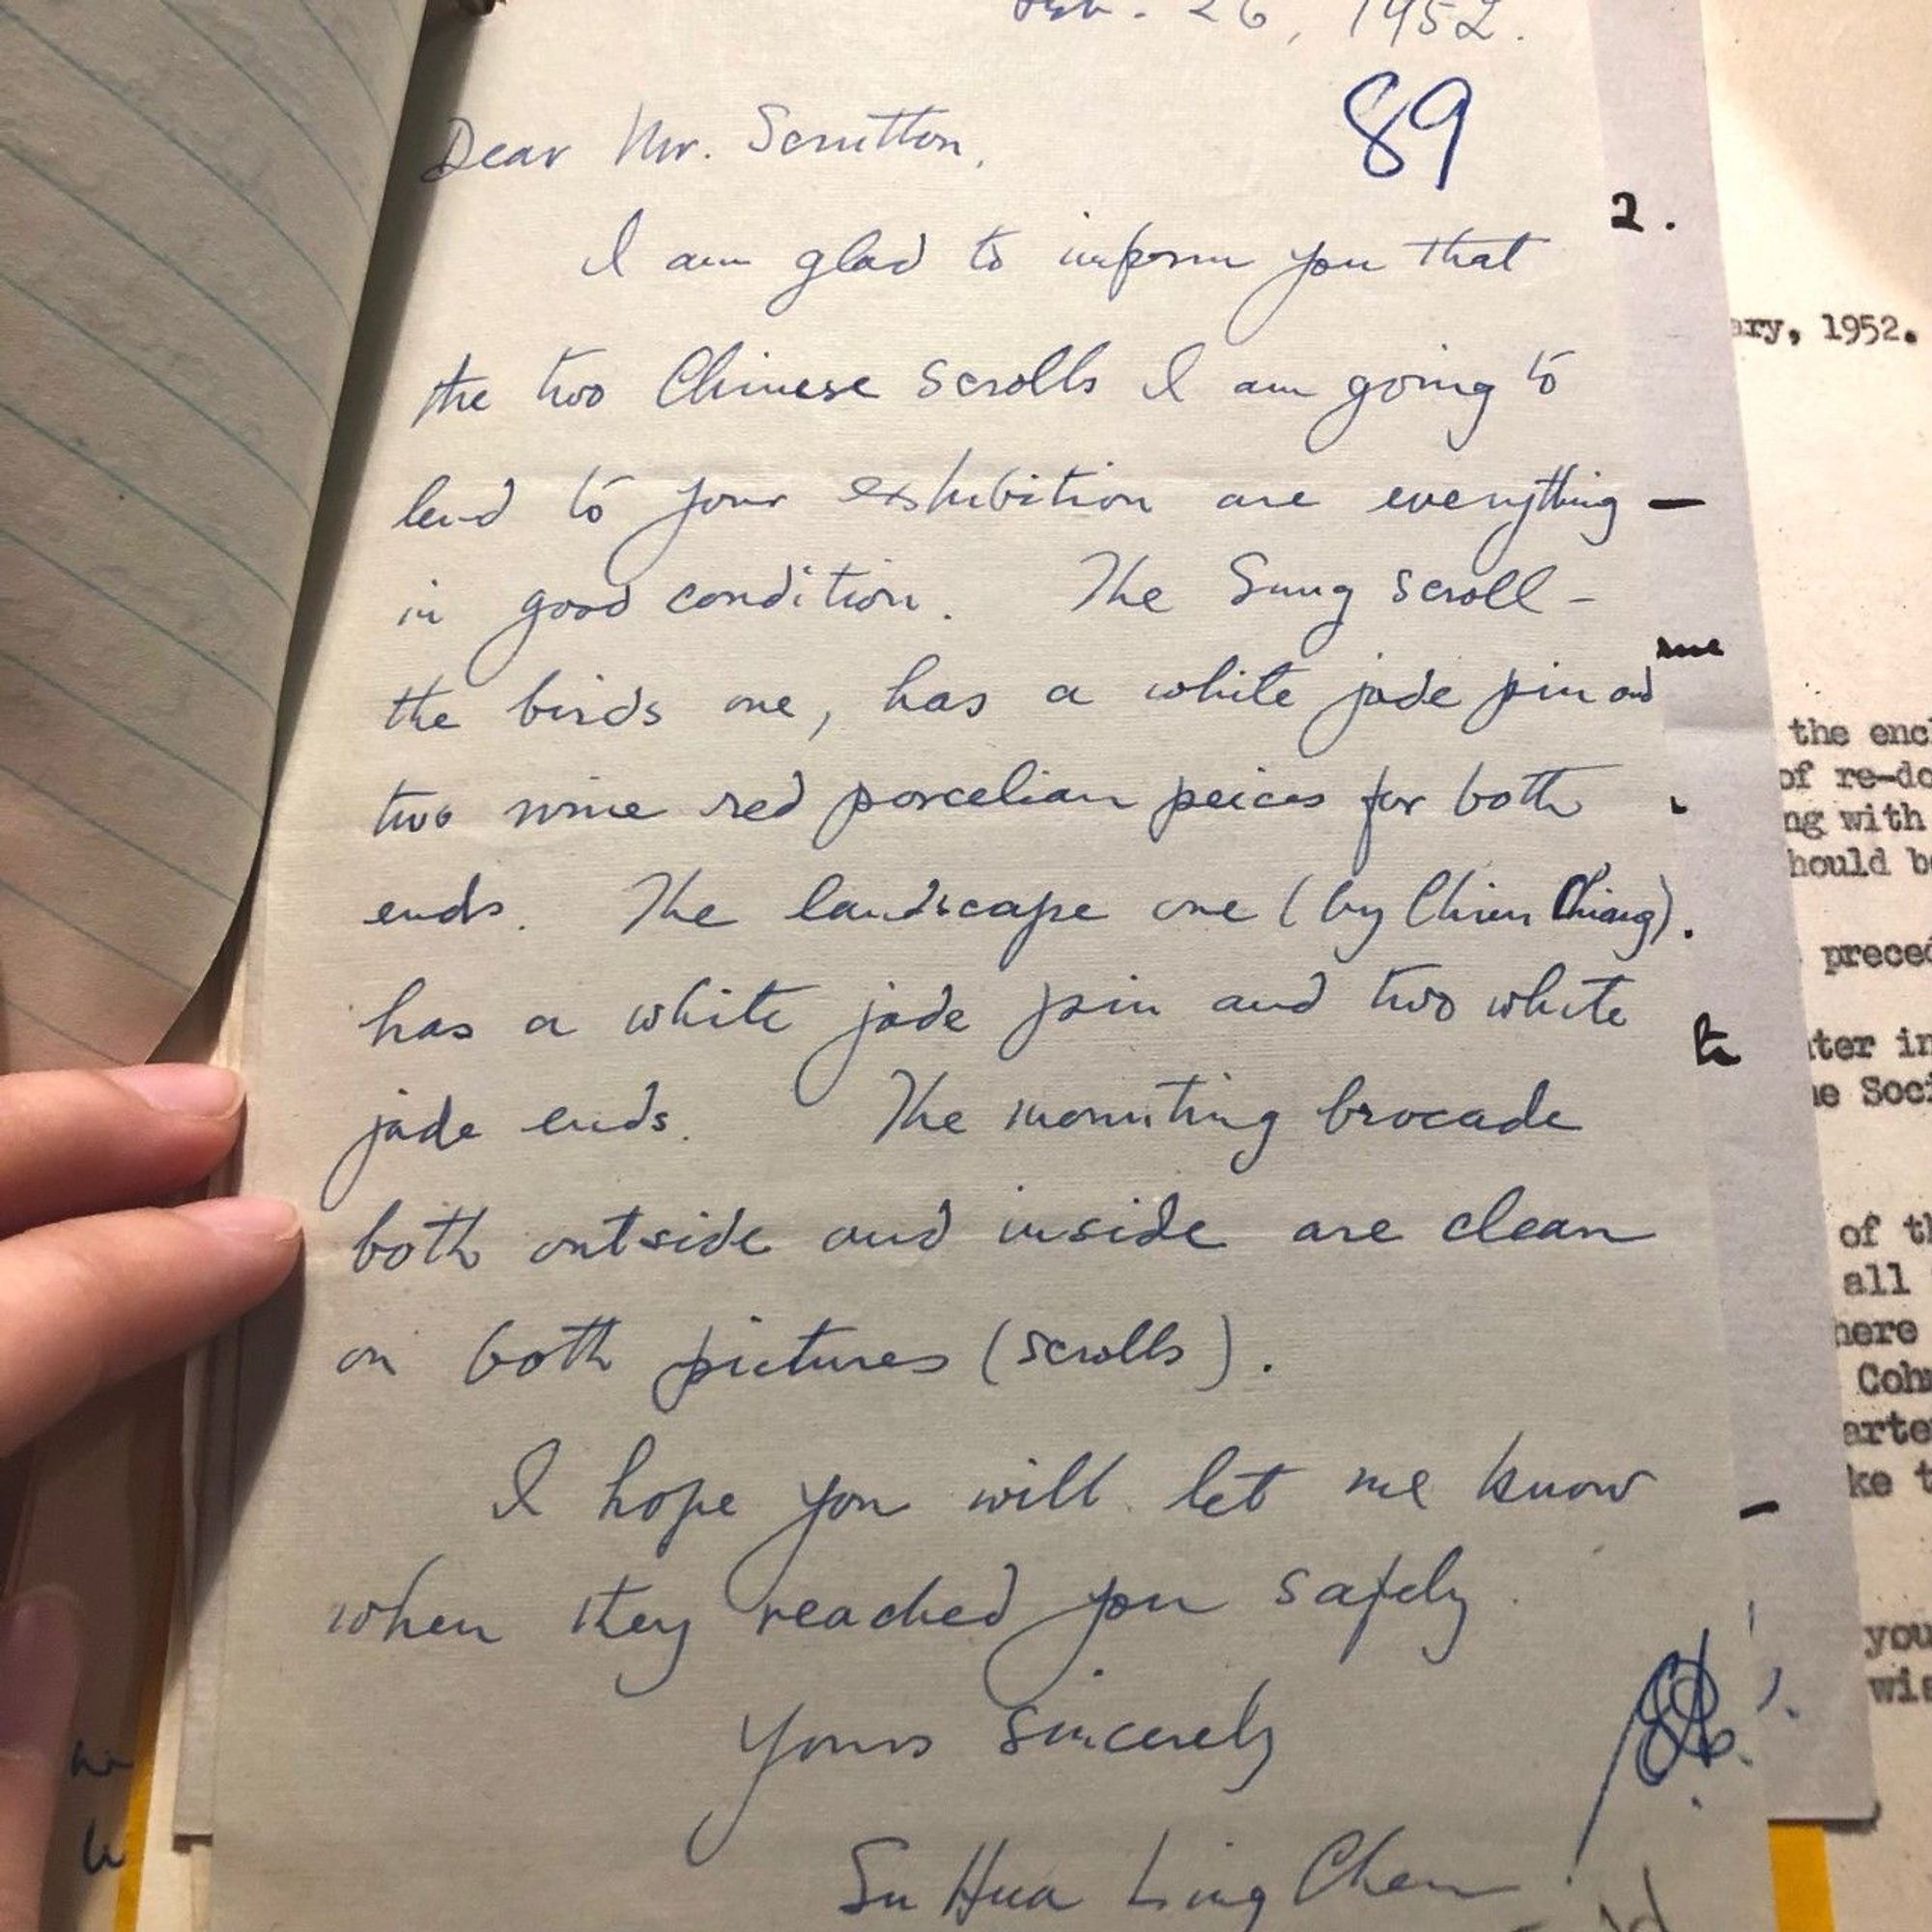 Feb. 26, 1952.
89
Dear Mr. Scrutton,
I am glad to inform you that
the two Chinese scrolls I am going to
lend to your exhibition are everything
in good condition. The Sung scroll -
the birds one, has a white jade pin and
two wine red porcelian peices for both
ends. The landscape one (by Chien Chiang).
has a white jade pin and two white
jade ends. The mounting brocade
both outside and inside are clean
on both pictures (scrolls).
I hope you will let me know
when they reached you safely.
Yours sincerely
Su Hua Ling Chen
2.
me
to
ary, 1952.
the enc
of re-do
ng with
hould b
preced
ter in
e Soci
of th
all
here
Coh
arte
ke t
you
wis